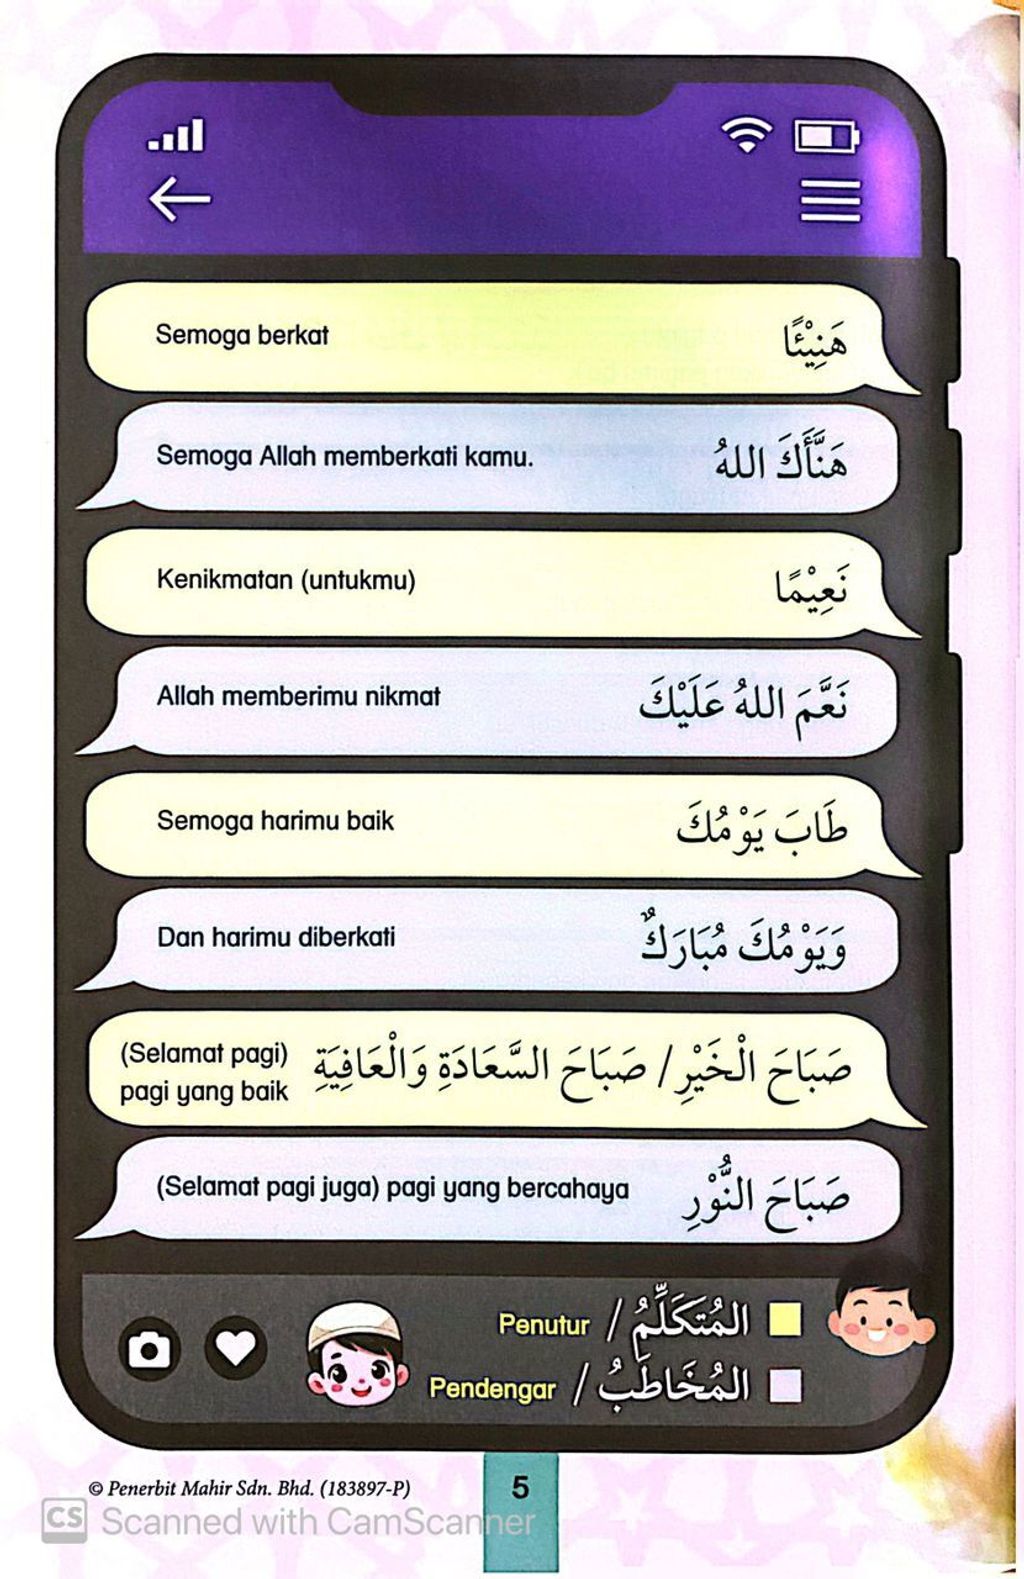 Semoga berkat هَنِيْئًا
Semoga Allah memberkati kamu. هَنَّأَكَ اللهُ
Kenikmatan (untukmu) نَعِيْمًا
Allah memberimu nikmat نَعَّمَ اللهُ عَلَيْكَ
Semoga harimu baik طَابَ يَوْمُكَ
Dan harimu diberkati وَيَوْمُكَ مُبَارَكٌ
(Selamat pagi) صَبَاحَ الْخَيْرِ / صَبَاحَ السَّعَادَةِ وَالْعَافِيَةِ
pagi yang baik
(Selamat pagi juga) pagi yang bercahaya صَبَاحَ النُّوْرِ
Penutur / المُتَكَلِّمُ
Pendengar / المُخَاطَبُ
© Penerbit Mahir Sdn. Bhd. (183897-P)
5
CS Scanned with CamScanner